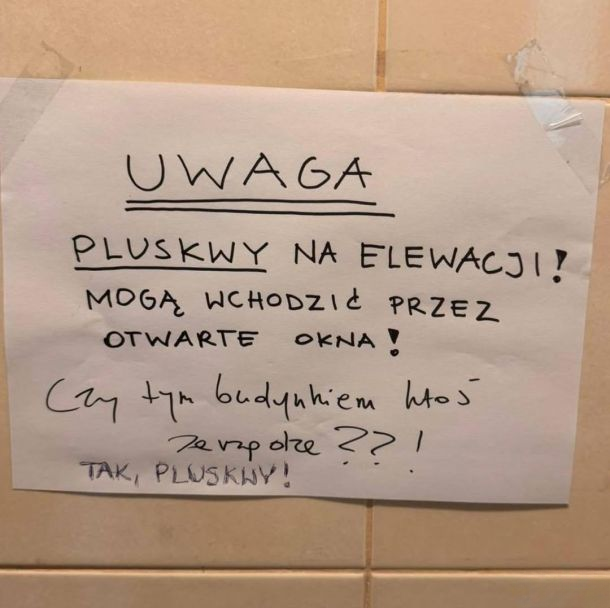 UWAGA
PLUSKWY NA ELEWACJI!
MOGĄ WCHODZIĆ PRZEZ
OTWARTE OKNA!
Czy tym budynkiem ktoś
zarządza ??!
TAK, PLUSKWY!